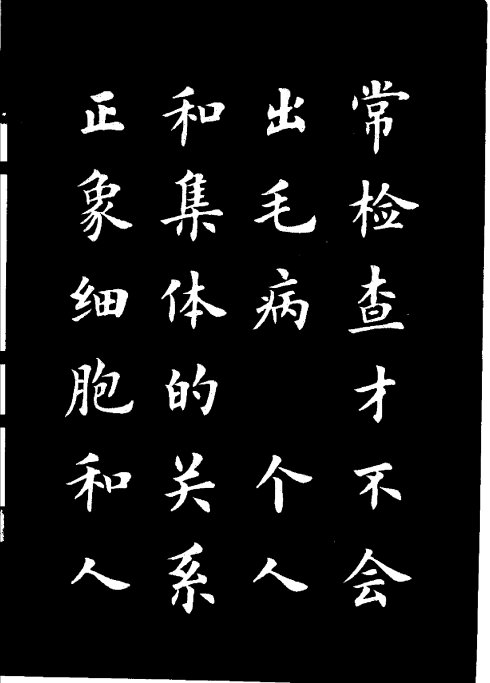 常检查才不会
出毛病 个人
和集体的关系
正象细胞和人